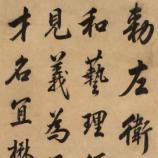 勅左衛
和藝理
見義為
才名宜懋